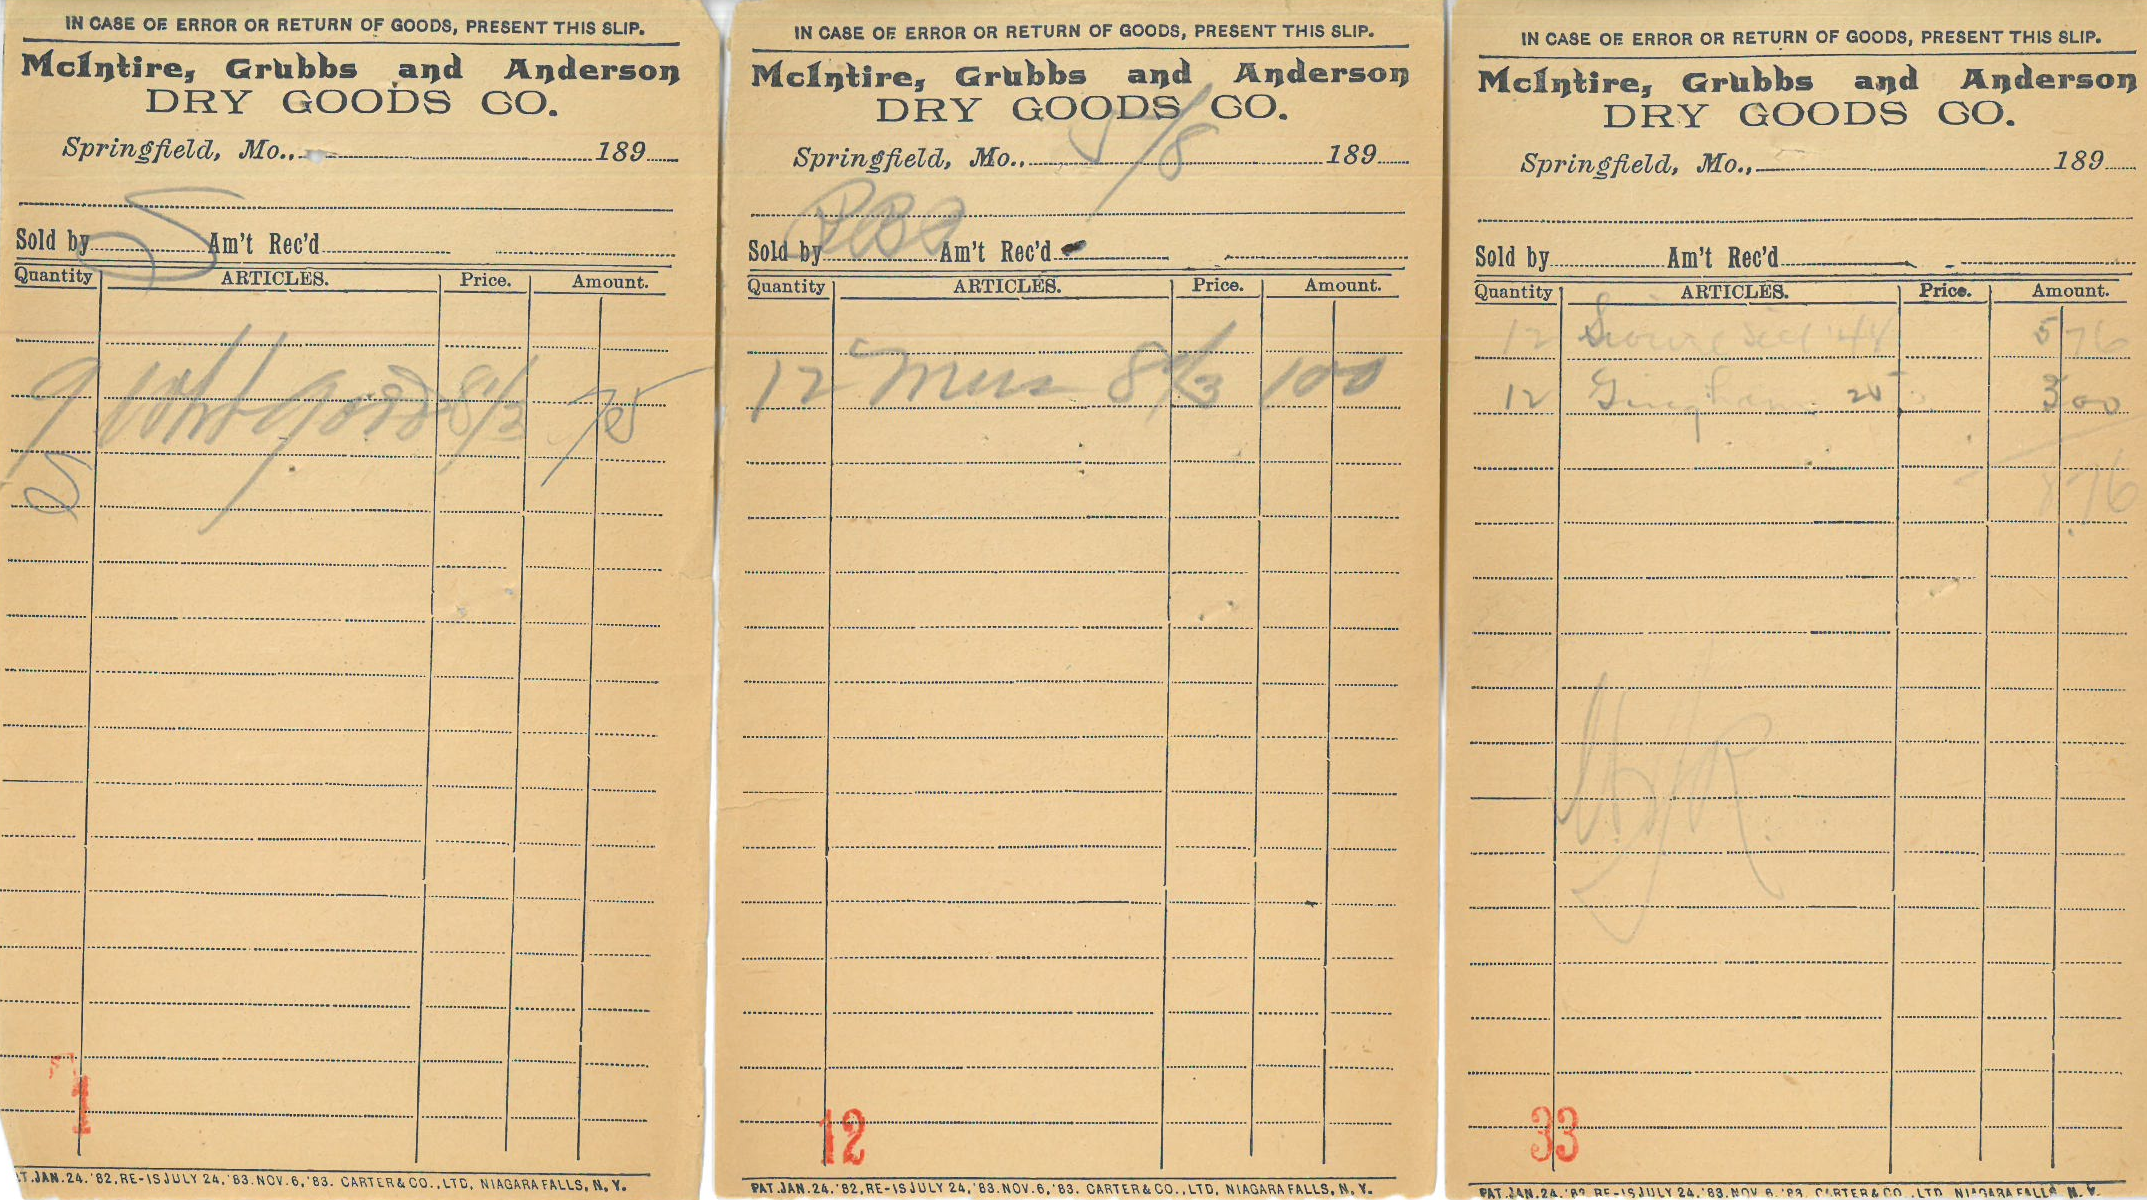 IN CASE OF ERROR OR RETURN OF GOODS, PRESENT THIS SLIP.
McIntire, Grubbs and Anderson
DRY GOODS CO.
Springfield, Mo., 189
Sold by Am't Rec'd
Quantity ARTICLES. Price. Amount.
9 8 1/3 75
1
T. JAN. 24. '82, RE-IS JULY 24, '83. NOV. 6, '83. CARTER & CO., LTD, NIAGARA FALLS, N. Y.
IN CASE OF ERROR OR RETURN OF GOODS, PRESENT THIS SLIP.
McIntire, Grubbs and Anderson
DRY GOODS CO.
Springfield, Mo., 5/8 189
Sold by Am't Rec'd
Quantity ARTICLES. Price. Amount.
12 Mus 8 1/3 100
12
PAT. JAN. 24. '82, RE-IS JULY 24, '83. NOV. 6, '83. CARTER & CO., LTD, NIAGARA FALLS, N. Y.
IN CASE OF ERROR OR RETURN OF GOODS, PRESENT THIS SLIP.
McIntire, Grubbs and Anderson
DRY GOODS CO.
Springfield, Mo., 189
Sold by Am't Rec'd
Quantity ARTICLES. Price. Amount.
12 5 76
12 Gingham 25 3 00
8 76
33
PAT. JAN. 24. '82, RE-IS JULY 24, '83. NOV. 6, '83. CARTER & CO., LTD, NIAGARA FALLS, N. Y.